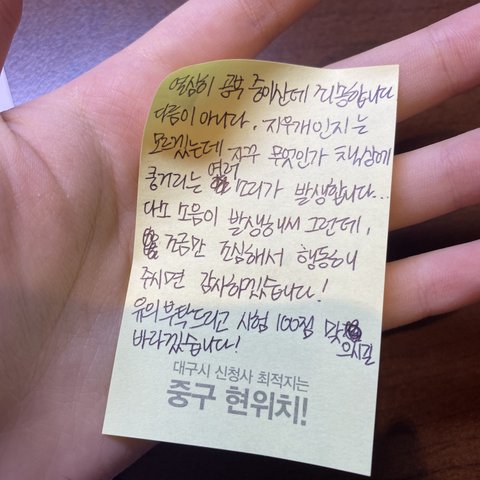 열심히 공부 중이신데 죄송합니다
다름이 아니라, 지우개인지는
모르겠는데 자꾸 무엇인가 책상에
쿵거리는 여러 소리가 발생합니다...
다소 소음이 발생해서 그런데,
조금만 조심해서 행동해
주시면 감사하겠습니다!
유의 부탁드리고 시험 100점 맞으시길
바라겠습니다!
대구시 신청사 최적지는
중구 현위치!